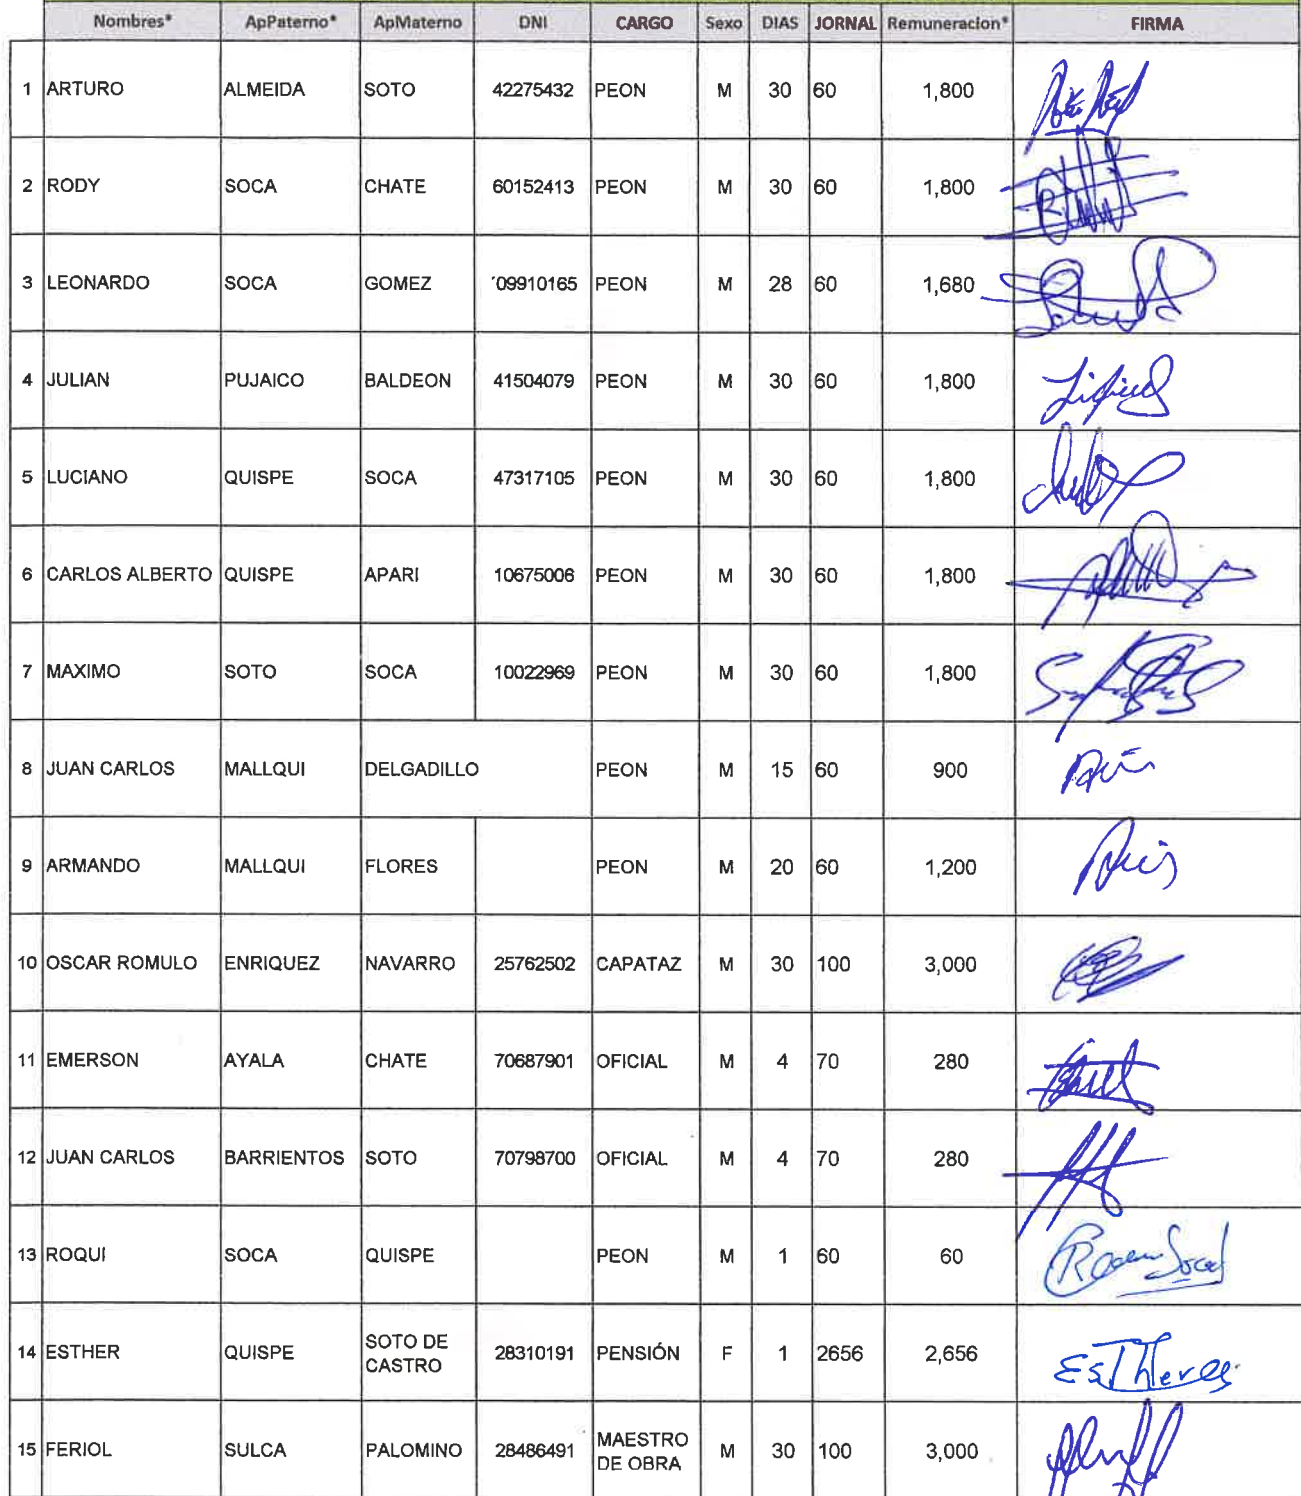 Nombres* ApPaterno* ApMaterno DNI CARGO Sexo DIAS JORNAL Remuneracion* FIRMA
1 ARTURO ALMEIDA SOTO 42275432 PEON M 30 60 1,800
2 RODY SOCA CHATE 60152413 PEON M 30 60 1,800
3 LEONARDO SOCA GOMEZ '09910165 PEON M 28 60 1,680
4 JULIAN PUJAICO BALDEON 41504079 PEON M 30 60 1,800
5 LUCIANO QUISPE SOCA 47317105 PEON M 30 60 1,800
6 CARLOS ALBERTO QUISPE APARI 10675006 PEON M 30 60 1,800
7 MAXIMO SOTO SOCA 10022969 PEON M 30 60 1,800
8 JUAN CARLOS MALLQUI DELGADILLO PEON M 15 60 900
9 ARMANDO MALLQUI FLORES PEON M 20 60 1,200
10 OSCAR ROMULO ENRIQUEZ NAVARRO 25762502 CAPATAZ M 30 100 3,000
11 EMERSON AYALA CHATE 70687901 OFICIAL M 4 70 280
12 JUAN CARLOS BARRIENTOS SOTO 70798700 OFICIAL M 4 70 280
13 ROQUI SOCA QUISPE PEON M 1 60 60
14 ESTHER QUISPE SOTO DE CASTRO 28310191 PENSIÓN F 1 2656 2,656
15 FERIOL SULCA PALOMINO 28486491 MAESTRO DE OBRA M 30 100 3,000